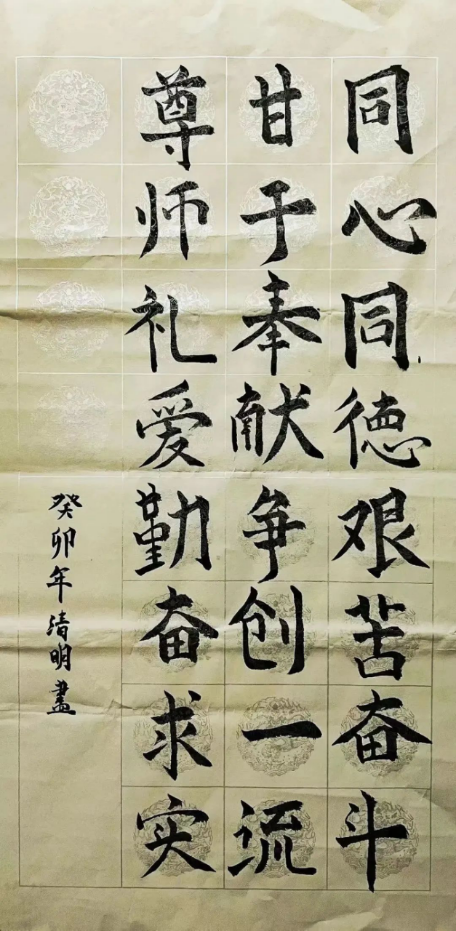 同心同德艰苦奋斗
甘于奉献争创一流
尊师礼爱勤奋求实
癸卯年清明盡